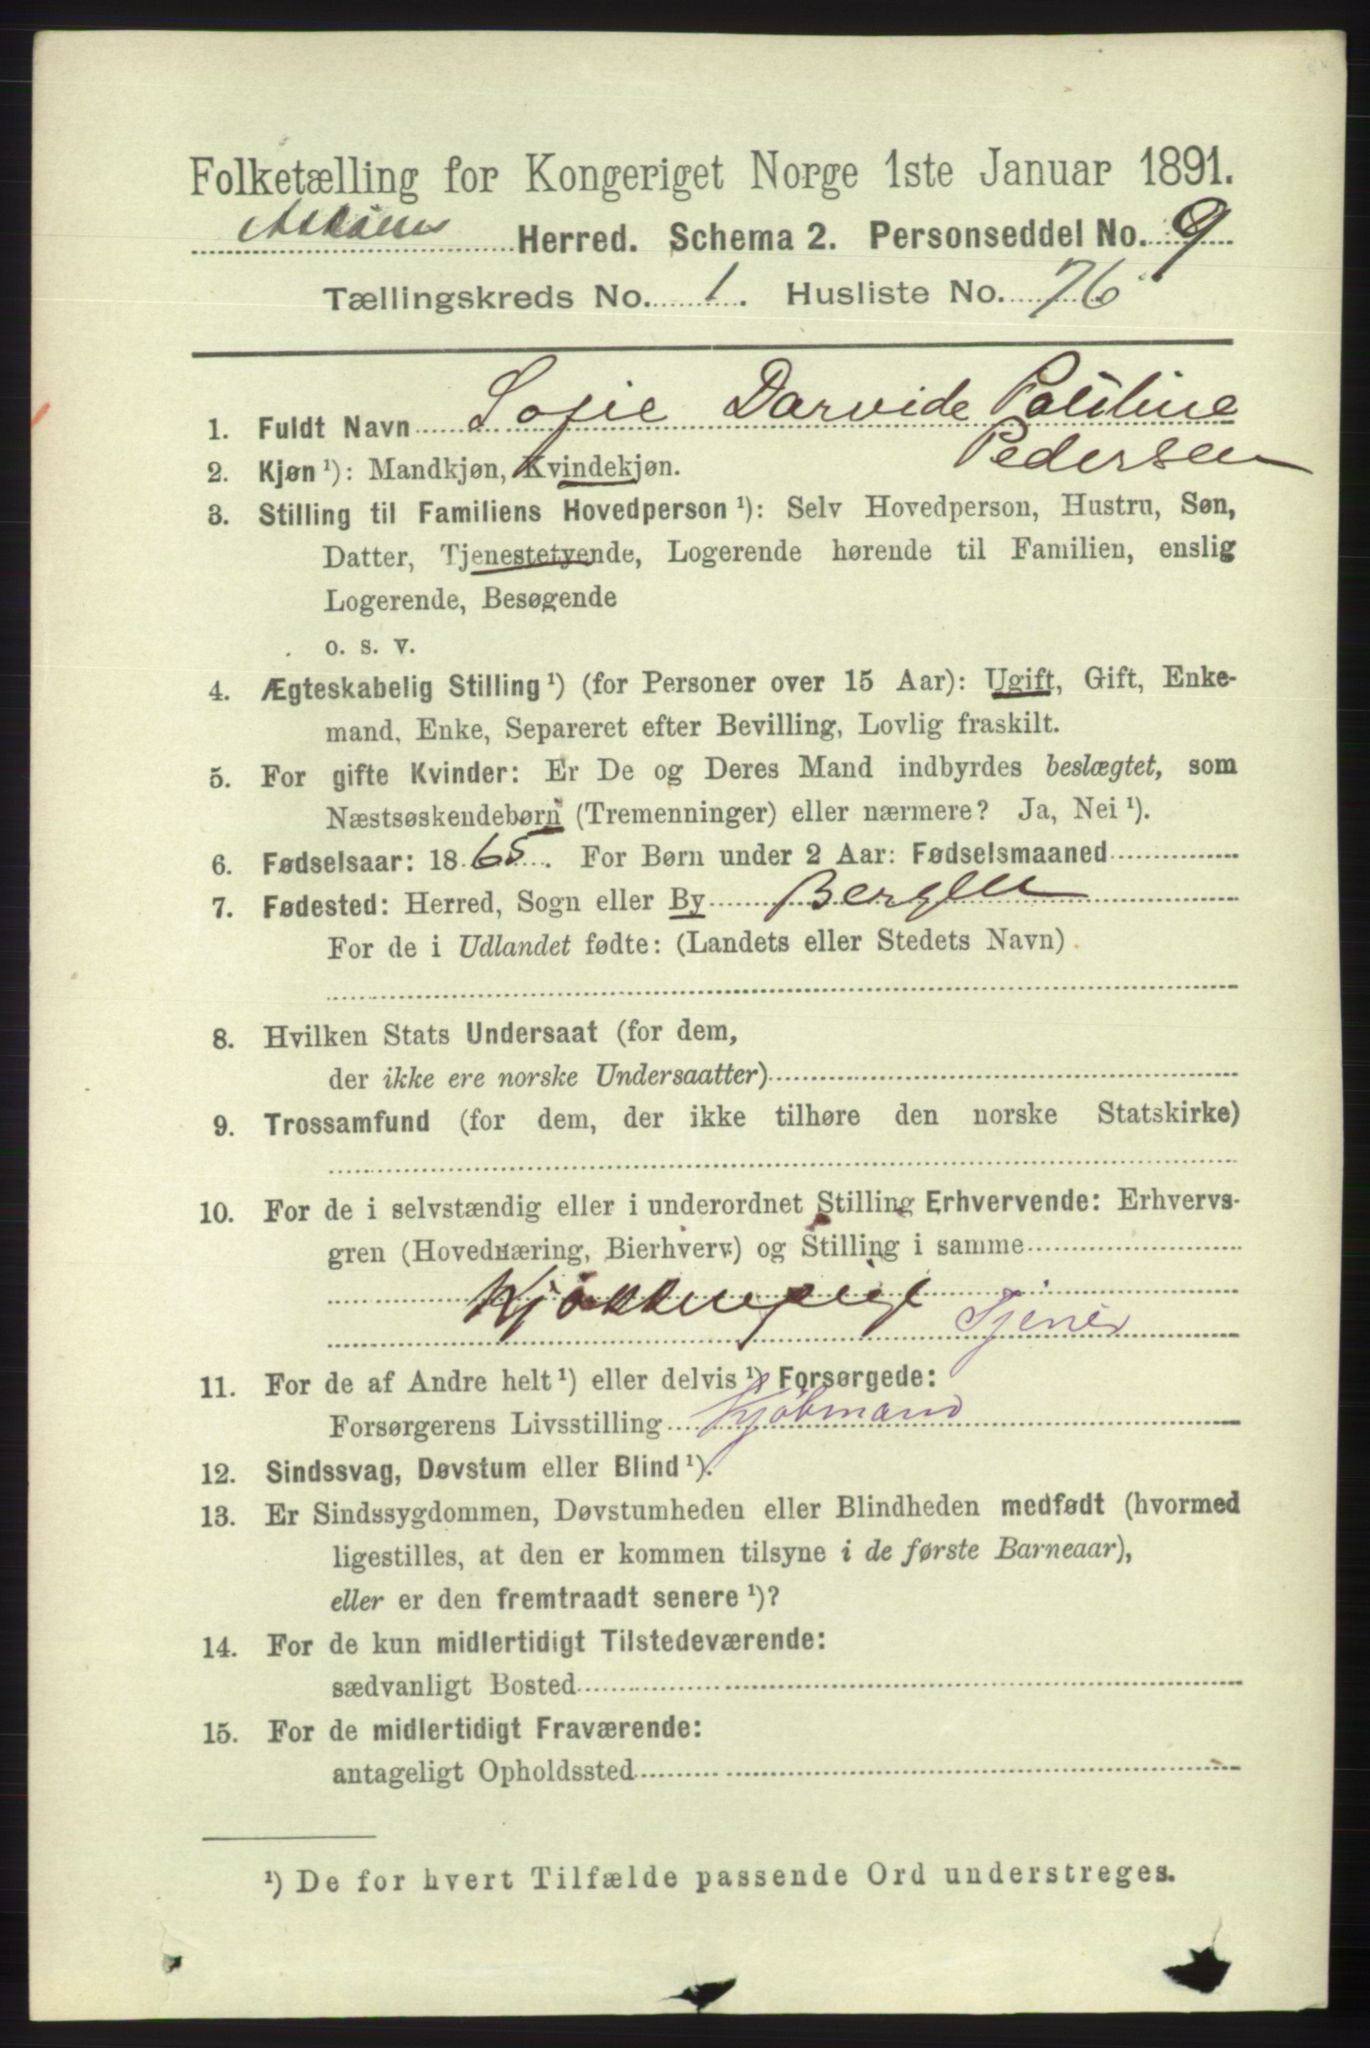 Folketælling for Kongeriget Norge 1ste Januar 1891.
Askøens Herred. Schema 2. Personseddel No. 9
Tællingskreds No. 1. Husliste No. 76
1. Fuldt Navn Sofie Darvide Pauline
Pedersen
2. Kjøn ¹): Mandkjøn, Kvindekjøn.
3. Stilling til Familiens Hovedperson ¹): Selv Hovedperson, Hustru, Søn,
Datter, Tjenestetyende, Logerende hørende til Familien, enslig
Logerende, Besøgende
o. s. v.
4. Ægteskabelig Stilling ¹) (for Personer over 15 Aar): Ugift, Gift, Enke-
mand, Enke, Separeret efter Bevilling, Lovlig fraskilt.
5. For gifte Kvinder: Er De og Deres Mand indbyrdes beslægtet, som
Næstsøskendebørn (Tremenninger) eller nærmere? Ja, Nei ¹).
6. Fødselsaar: 1865. For Børn under 2 Aar: Fødselsmaaned
7. Fødested: Herred, Sogn eller By Bergen
For de i Udlandet fødte: (Landets eller Stedets Navn)
8. Hvilken Stats Undersaat (for dem,
der ikke ere norske Undersaatter)
9. Trossamfund (for dem, der ikke tilhøre den norske Statskirke)
10. For de i selvstændig eller i underordnet Stilling Erhvervende: Erhvervs-
gren (Hovednæring, Bierhverv) og Stilling i samme
Kjøkkenpige Tjener
11. For de af Andre helt ¹) eller delvis ¹) Forsørgede:
Forsørgerens Livsstilling Kjøbmand
12. Sindssvag, Døvstum eller Blind ¹).
13. Er Sindssygdommen, Døvstumheden eller Blindheden medfødt (hvormed
ligestilles, at den er kommen tilsyne i de første Barneaar),
eller er den fremtraadt senere ¹)?
14. For de kun midlertidigt Tilstedeværende:
sædvanligt Bosted
15. For de midlertidigt Fraværende:
antageligt Opholdssted
¹) De for hvert Tilfælde passende Ord understreges.